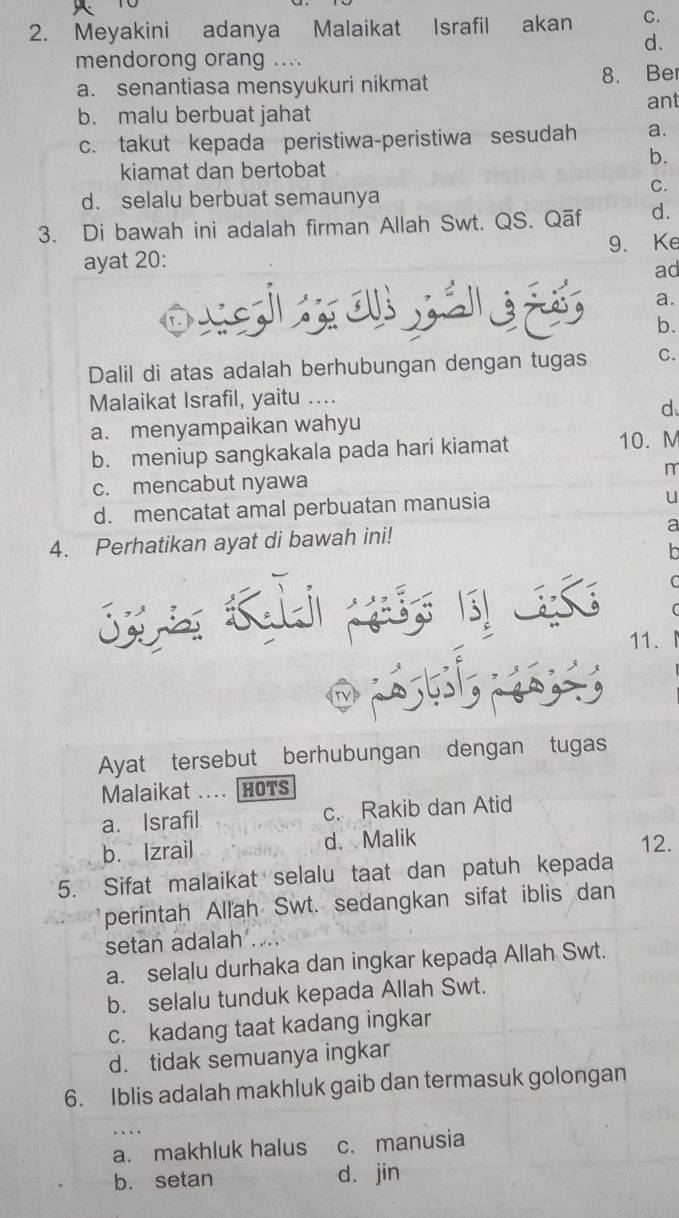 2. Meyakini adanya Malaikat Israfil akan
mendorong orang ....
a. senantiasa mensyukuri nikmat
b. malu berbuat jahat
c. takut kepada peristiwa-peristiwa sesudah
kiamat dan bertobat
d. selalu berbuat semaunya
3. Di bawah ini adalah firman Allah Swt. QS. Qāf
ayat 20:
وَنُفِخَ فِى الصُّوْرِ ذٰلِكَ يَوْمُ الْوَعِيْدِ ﴿٢٠﴾
Dalil di atas adalah berhubungan dengan tugas
Malaikat Israfil, yaitu ....
a. menyampaikan wahyu
b. meniup sangkakala pada hari kiamat
c. mencabut nyawa
d. mencatat amal perbuatan manusia
4. Perhatikan ayat di bawah ini!
فَكَيْفَ اِذَا تَوَفَّتْهُمُ الْمَلٰۤىِٕكَةُ يَضْرِبُوْنَ
وُجُوْهَهُمْ وَأَدْبَارَهُمْ ﴿٢٧﴾
Ayat tersebut berhubungan dengan tugas
Malaikat .... HOTS
a. Israfil c. Rakib dan Atid
b. Izrail d. Malik
5. Sifat malaikat selalu taat dan patuh kepada
perintah Allah Swt. sedangkan sifat iblis dan
setan adalah ....
a. selalu durhaka dan ingkar kepada Allah Swt.
b. selalu tunduk kepada Allah Swt.
c. kadang taat kadang ingkar
d. tidak semuanya ingkar
6. Iblis adalah makhluk gaib dan termasuk golongan
....
a. makhluk halus c. manusia
b. setan d. jin
c.
d.
8. Ber
ant
a.
b.
c.
d.
9. Ke
ad
a.
b.
c.
d.
10. M
m
u
a
b
c
11.
12.